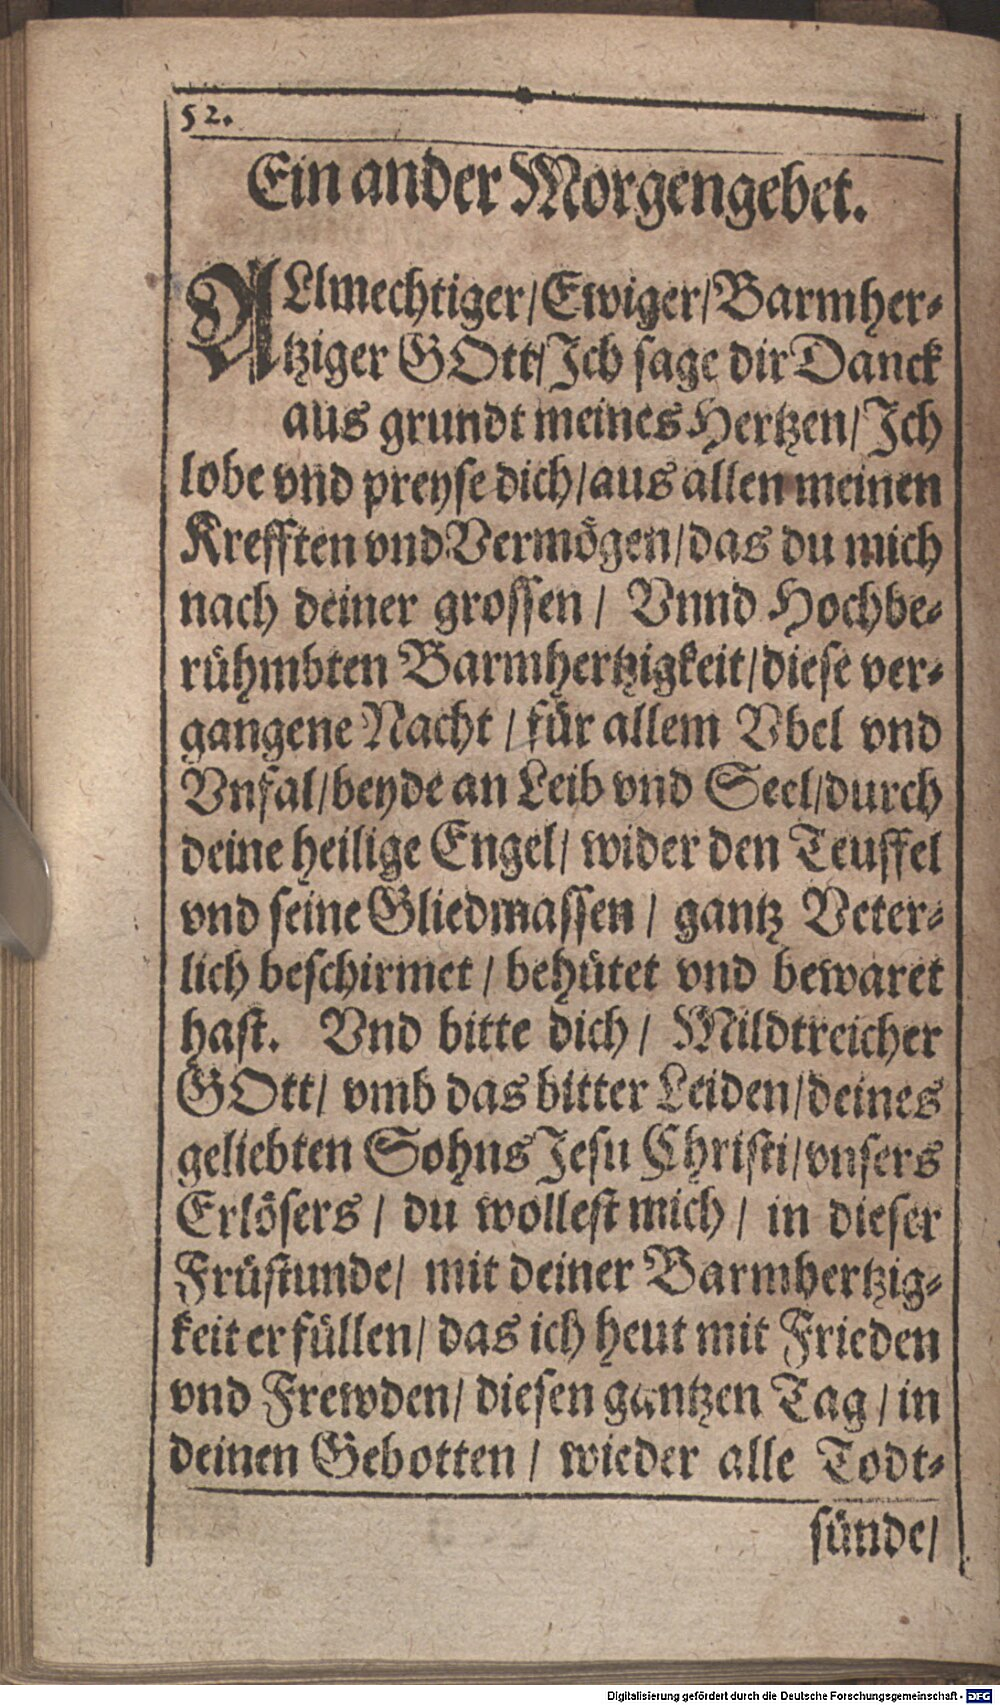 52.
Ein ander Morgengebet.
ALlmechtiger/Ewiger/Barmher-
tziger GOtt/Ich sage dir Danck
aus grundt meines Hertzen/Ich
lobe vnd preyse dich/aus allen meinen
Krefften vnd Vermögen/das du mich
nach deiner grossen/ Vnnd Hochbe-
rühmbten Barmhertzigkeit/diese ver-
gangene Nacht/für allem Vbel vnd
Vnfal/beyde an Leib vnd Seel/durch
deine heilige Engel/ wider den Teuffel
vnd seine Gliedmassen/ gantz Veter-
lich beschirmet/behütet vnd bewaret
hast. Vnd bitte dich/ Mildtreicher
GOtt/ vmb das bitter Leiden/deines
geliebten Sohns Jesu Christi/vnsers
Erlösers/ du wollest mich/ in dieser
Früstunde/ mit deiner Barmhertzig-
keit erfüllen/ das ich heut mit Frieden
vnd Frewden/ diesen gantzen Tag/in
deinen Gebotten/ wieder alle Todt-
sünde/
Digitalisierung gefördert durch die Deutsche Forschungsgemeinschaft - DFG